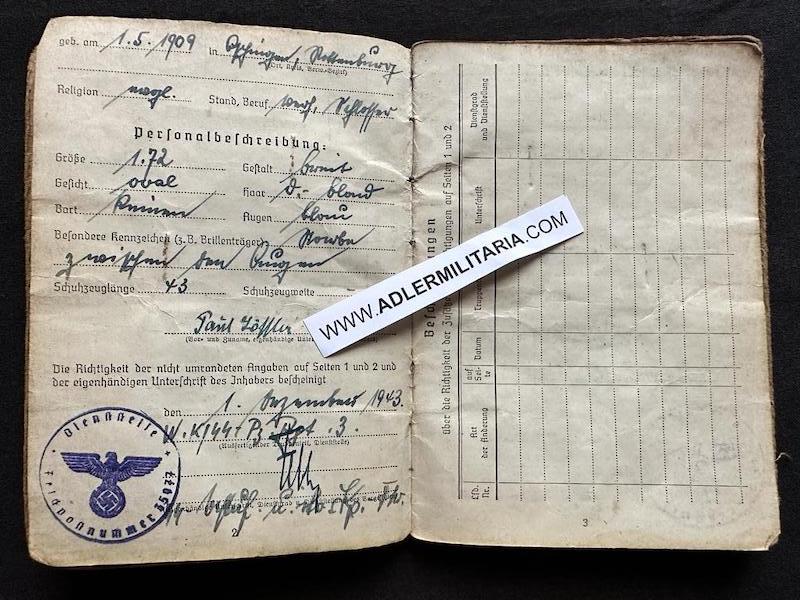 geb. am 1.5.1909 in Öschingen, Rottenburg
(Ort, Kreis, Verw.-Bezirk)
Religion evgl. Stand, Beruf verh. Schlosser
Personalbeschreibung:
Größe 1.72 Gestalt breit
Gesicht oval Haar d.-blond
Bart keinen Augen blau
Besondere Kennzeichen (z.B. Brillenträger) Narbe
zwischen den Augen
Schuhzeuglänge 43 Schuhzeugweite
Paul
(Vor- und Zuname, eigenhändige
Die Richtigkeit der nicht umrandeten Angaben auf Seiten 1 und 2 und
der eigenhändigen Unterschrift des Inhabers bescheinigt
den 1. Dezember 1943.
Rgt. 3.
Dienststelle
Feldpostnummer 35077
2
WWW.ADLERMILITARIA.COM
über die Richtigkeit der
auf Seiten 1 und 2
Dienstgrad
und Dienststellung
Unterschrift
Datum
auf
Sei-
te
Art
der Änderung
Lfd.
Nr.
3